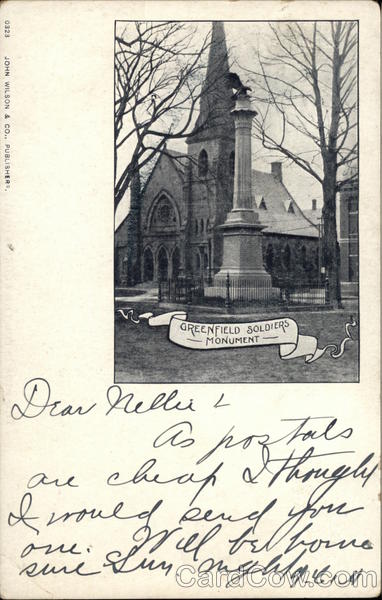 0323 JOHN WILSON & CO., PUBLISHERS.
GREENFIELD SOLDIERS
— MONUMENT —
Dear Nellie!
As postals
are cheap I thought
I would send you
one. Will be home
sure Sun night.
CardCow.com